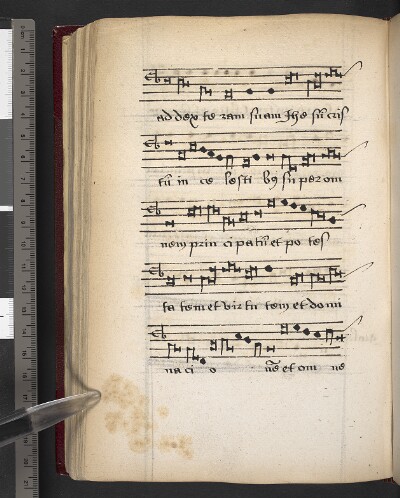 ad dex te ram suam Ihe su cris
tu in ce lesti bꝰ super om
nem prin ci patu et po tes
ta tem et vir tu tem et domi
na ci o ne et om ne